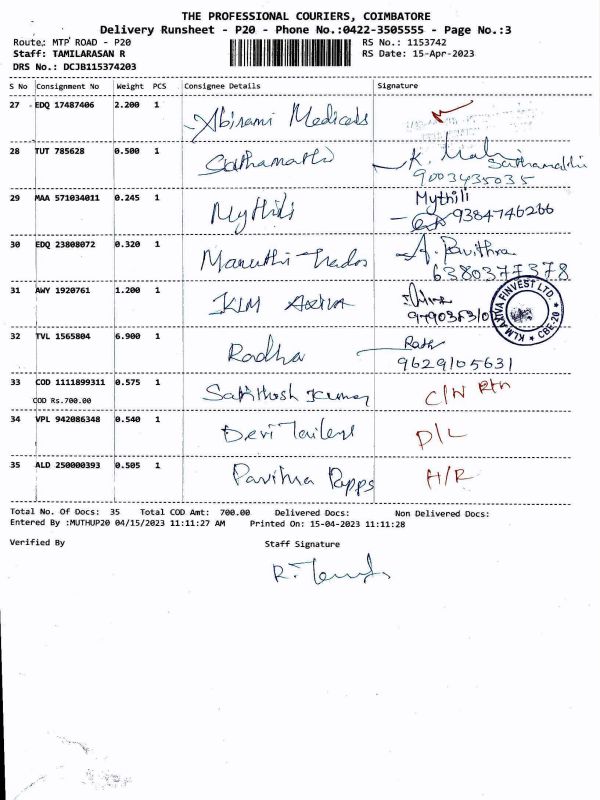 THE PROFESSIONAL COURIERS, COIMBATORE
Delivery Runsheet - P20 - Phone No.:0422-3505555 - Page No.:3
Route: MTP ROAD - P20 RS No.: 1153742
Staff: TAMILARASAN R RS Date: 15-Apr-2023
DRS No.: DCJB115374203
S No Consignment No Weight PCS Consignee Details Signature
27 EDQ 17487406 2.200 1 Abirami Medicals
28 TUT 785628 0.500 1 Sathamathi K.
9003435035
29 MAA 571034011 0.245 1 Mythili Mythili
9384746266
30 EDQ 23808072 0.320 1 Maruthi Trados A. Pavithra
6380377378
31 AWY 1920761 1.200 1 KLM Axiva
KLM AXIVA FINVEST LTD. CBE-20
32 TVL 1565804 6.900 1 Radha
9629105631
33 COD 1111899311 0.575 1 Santhosh Kumar C/N Rtn
COD Rs.700.00
34 VPL 942086348 0.540 1 Devi Tailers D/L
35 ALD 250000393 0.505 1 Pavithra Papps H/R
Total No. Of Docs: 35 Total COD Amt: 700.00 Delivered Docs: Non Delivered Docs:
Entered By :MUTHUP20 04/15/2023 11:11:27 AM Printed On: 15-04-2023 11:11:28
Verified By Staff Signature